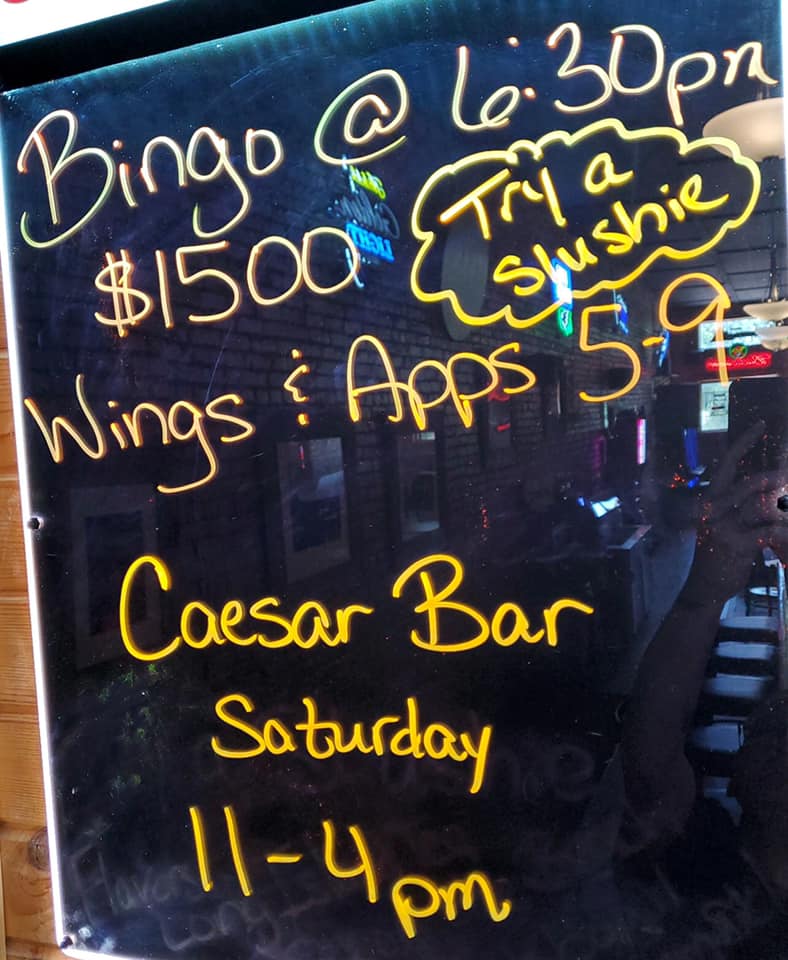 Bingo @ 6:30pm
$1500
Try a
slushie
Wings & Apps 5-9
Caesar Bar
Saturday
11-4pm